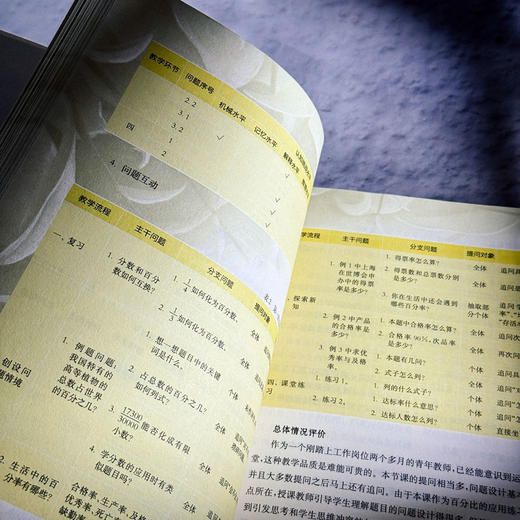 教学环节 问题序号 机械水平 记忆水平 解释水平
2.2
3.1 √
3.2 √
四 1 √
2 √
4. 问题互动
教学流程 主干问题 分支问题 提问对象
一、复习 1. 分数和百分数如何互换?
1. 1/4如何化为百分数. 全体
2. 1/3如何化为百分数. 全体
1. 例题问题:我国特有的高等植物的总数占世界的百分之几?
1. 想一想题目中的关键词是什么。 个体
2. 占总数的百分之几?如何列式? 个体
3. 17300/30000能否化成有限小数? 全体
创设问题情境
4. 学分数的应用时有类似题目吗? 全体
2. 生活中的百分率有哪些?
合格率、生产率、及格
优秀率、死亡
缺勤率
学流程 主干问题 分支问题 提问对象
1. 得票率怎么算? 全体 追问
1. 例1中上海在世博会申办中的得票率是多少?
2. 得票数和总票数分别是多少? 全体
探索新知
3. 你在生活中还会遇到哪些百分率? 抽取部分个体
2. 例2中产品的合格率是多少?
1. 本题中合格率怎么算? 全体
2. 合格率90%,次品率是多少? 全体 再次问
3. 例3中求优秀率与及格率.
1. 本题有几问? 全体
2. 式子怎么列? 个体
四、课堂练习 1. 练习1. 1. 列的什么式子? 全体
2. 练习2. 1. 达标率什么意思? 个体 追问
2. 达标人数怎么列? 个体 直接
总体情况评价
作为一个刚踏上工作岗位两个多月的青年教师,已经能意识到运
堂,这种教学品质是难能可贵的。本节课的提问相当多,问题设计基
并且大多数提问之后马上还有追问。由于本课作为百分比的应用练
点所在,授课教师引导学生理解题目的问题设计得很多,
到引发思考和学生思维冲突